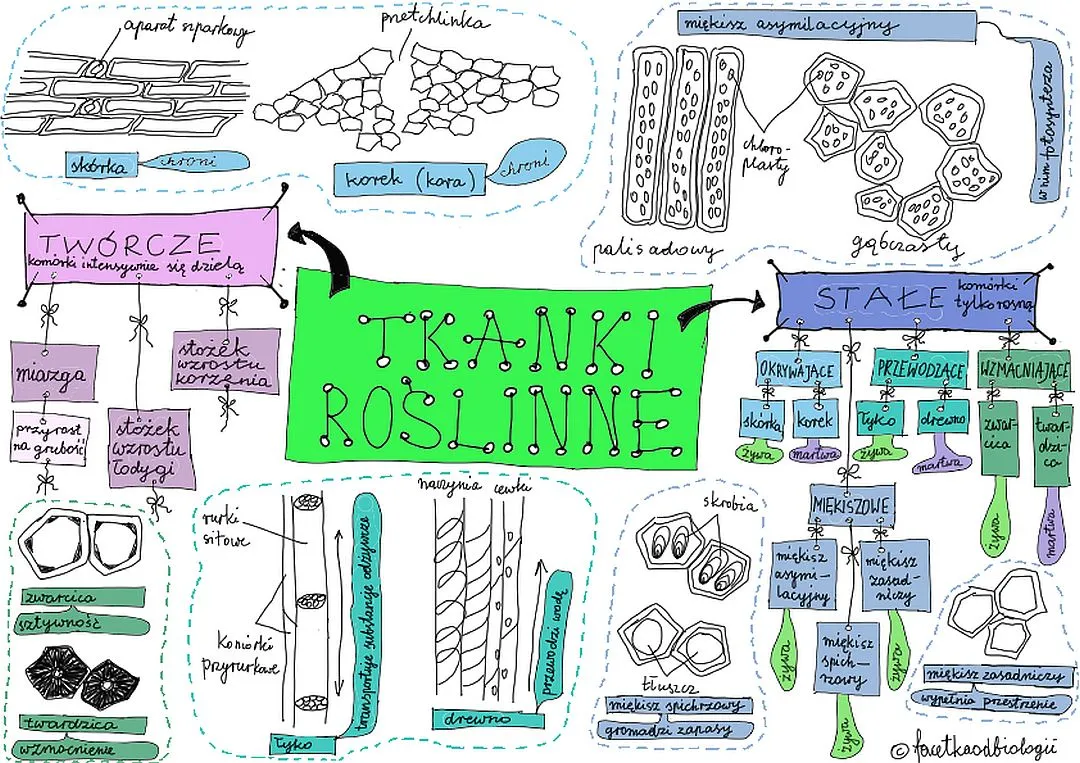 aparat szparkowy
przetchlinka
skórka
chroni
korek (kora)
chroni
miękisz asymilacyjny
w nim fotosynteza
chloro-
plasty
palisadowy
gąbczasty
TWÓRCZE
komórki intensywnie się dzielą
miazga
przyrost
na grubość
stożek
wzrostu
łodygi
stożek
wzrostu
korzenia
TKANKI
ROŚLINNE
STAŁE
komórki
tylko rosną
OKRYWAJĄCE
skórka
żywa
korek
martwa
PRZEWODZĄCE
łyko
żywa
drewno
martwa
WZMACNIAJĄCE
zwar-
cica
żywa
twar-
dzi-
ca
martwa
MIĘKISZOWE
miękisz
asymi-
lacyjny
żywa
miękisz
zasad-
niczy
żywa
miękisz
spich-
rzowy
żywa
zwarcica
sztywność
twardzica
wzmocnienie
rurki
sitowe
komórki
przyrurkowe
transportuje substancje odżywcze
łyko
naczynia
cewki
przewodzi wodę
drewno
skrobia
tłuszcz
miękisz spichrzowy
gromadzi zapasy
miękisz zasadniczy
wypełnia przestrzenie
© facetkaodbiologii